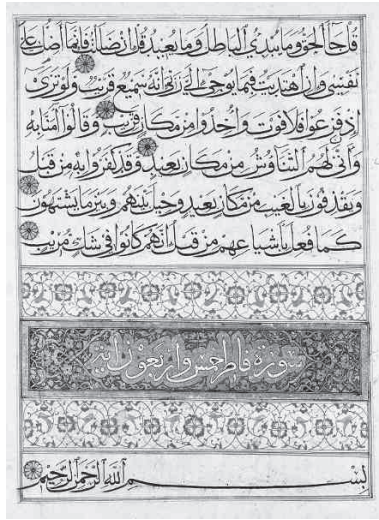 قل جاء الحق وما يبدئ الباطل وما يعيد قل إن ضللت فإنما أضل على
نفسي وإن اهتديت فبما يوحي إلي ربي إنه سميع قريب ولو ترى
إذ فزعوا فلا فوت وأخذوا من مكان قريب وقالوا آمنا به
وأنى لهم التناوش من مكان بعيد وقد كفروا به من قبل
ويقذفون بالغيب من مكان بعيد وحيل بينهم وبين ما يشتهون
كما فعل بأشياعهم من قبل إنهم كانوا في شك مريب
سورة فاطر خمس وأربعون آية
بسم الله الرحمن الرحيم